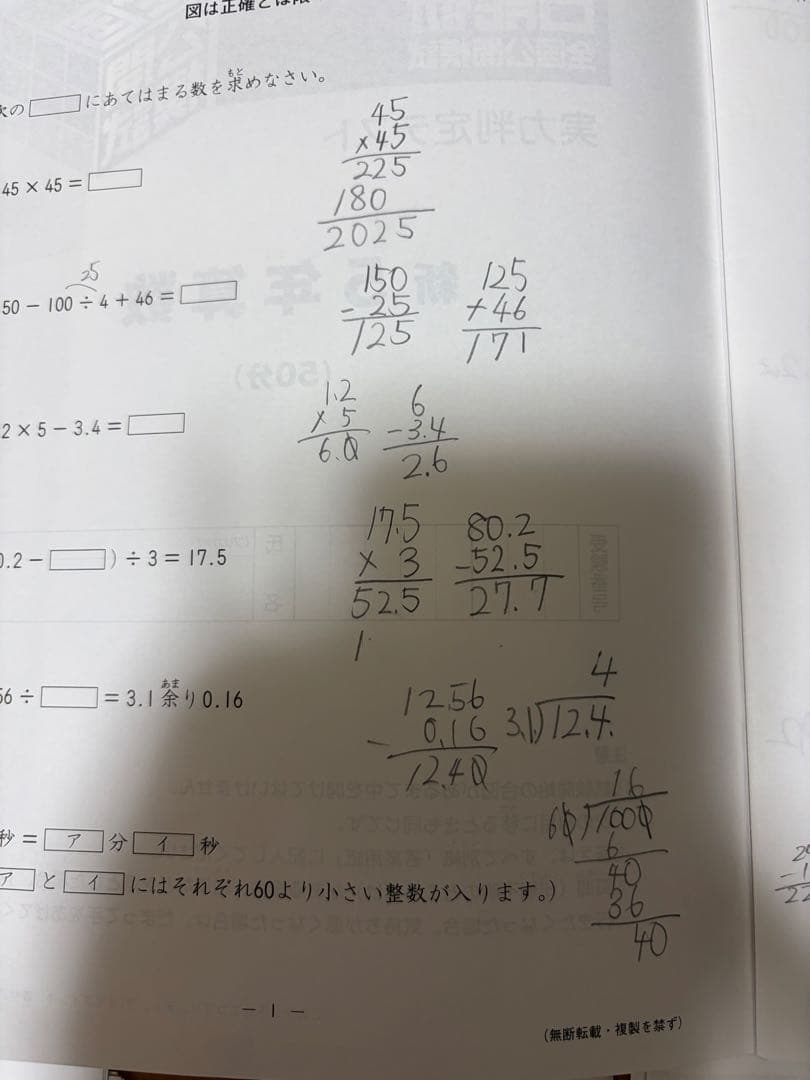 図は正確とは限
次の□にあてはまる数を求めなさい。
もと
45 × 45 = □
45
×45
225
180
2025
25
50 − 100 ÷ 4 + 46 = □
150
−25
125
125
+46
171
2 × 5 − 3.4 = □
1.2
× 5
6.0
6
−3.4
2.6
0.2 − □ ) ÷ 3 = 17.5
17.5
× 3
52.5
1
80.2
−52.5
27.7
56 ÷ □ = 3.1余り0.16
あま
12.56
− 0.16
12.40
4
3.1)12.4.
秒 = ア 分 イ 秒
16
60)1000
6
40
36
40
ア と イ にはそれぞれ60より小さい整数が入ります。)
− 1 −
(無断転載・複製を禁ず)